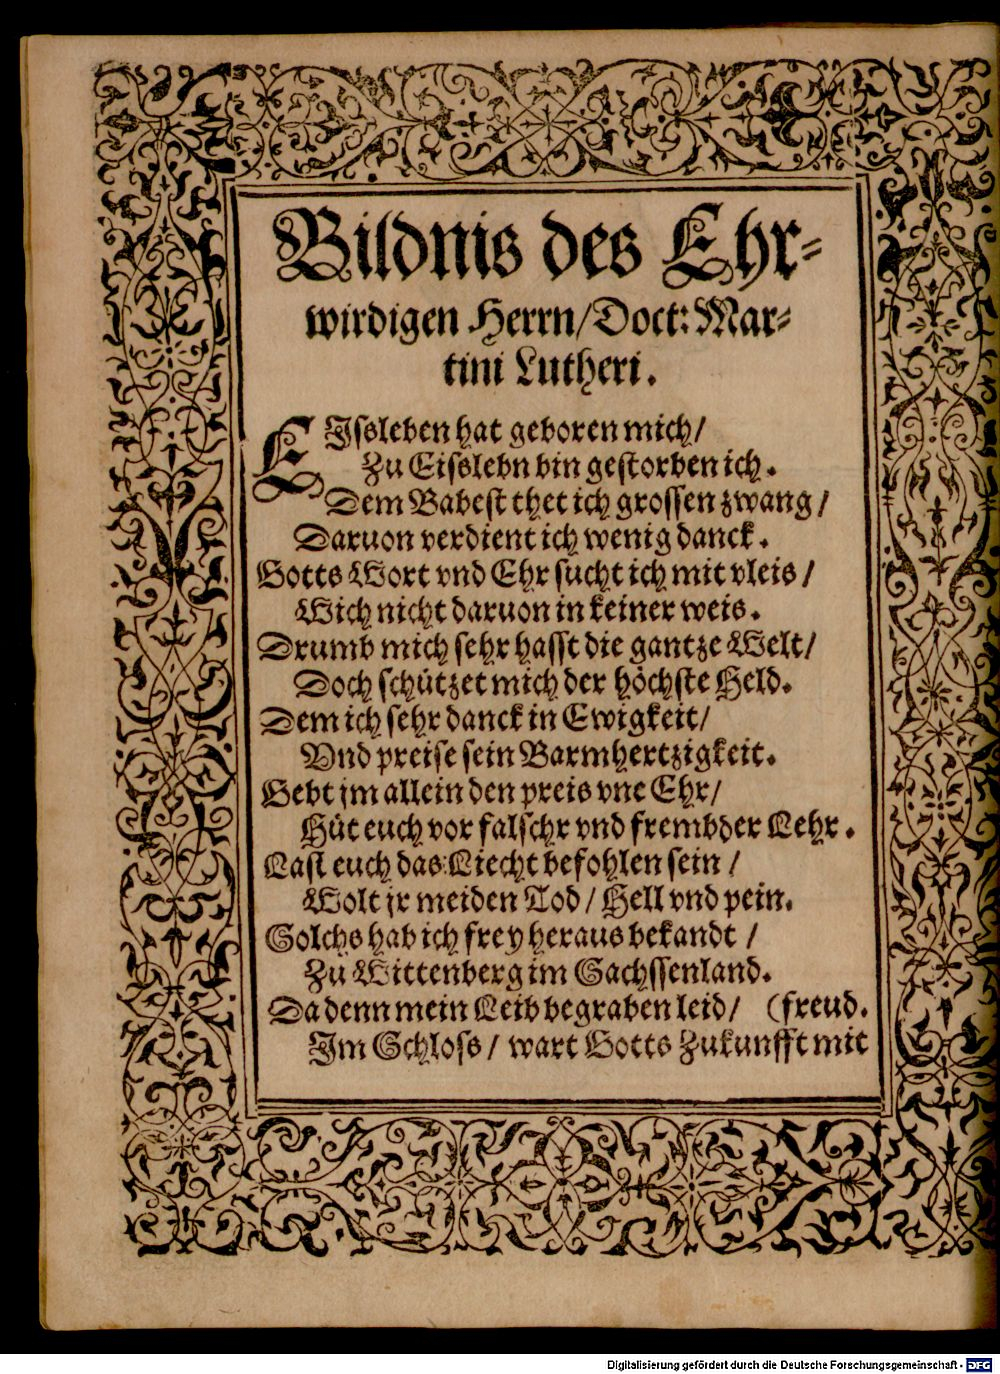 Bildnis des Ehr-
wirdigen Herrn/Doct: Mar-
tini Lutheri.
EIssleben hat geboren mich/
Zu Eisslebn bin gestorben ich.
Dem Babest thet ich grossen zwang/
Daruon verdient ich wenig danck.
Gotts Wort vnd Ehr sucht ich mit vleis/
Wich nicht daruon in keiner weis.
Drumb mich sehr hasst die gantze Welt/
Doch schützet mich der höchste Held.
Dem ich sehr danck in Ewigkeit/
Vnd preise sein Barmhertzigkeit.
Gebt jm allein den preis vne Ehr/
Hüt euch vor falschr vnd frembder Lehr.
Last euch das Liecht befohlen sein/
Wolt jr meiden Tod/ Hell vnd pein.
Solchs hab ich frey heraus bekandt/
Zu Wittenberg im Sachssenland.
Da denn mein Leib begraben leid/ (freud.
Im Schloss/ wart Gotts Zukunfft mit
Digitalisierung gefördert durch die Deutsche Forschungsgemeinschaft - DFG